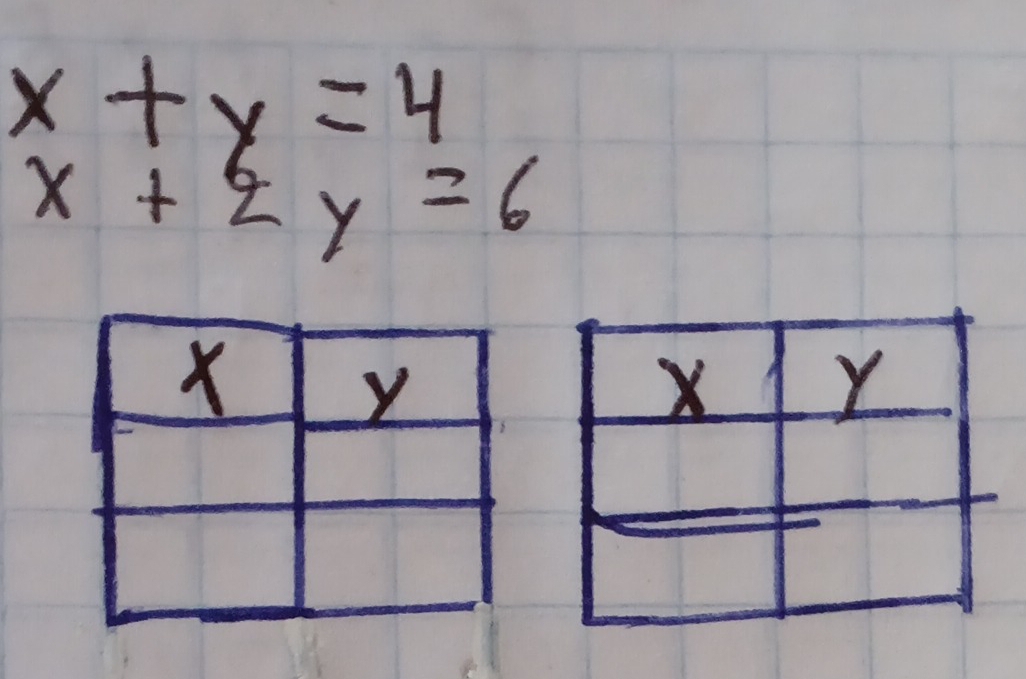 x + y = 4
x + 2y = 6
x y x y